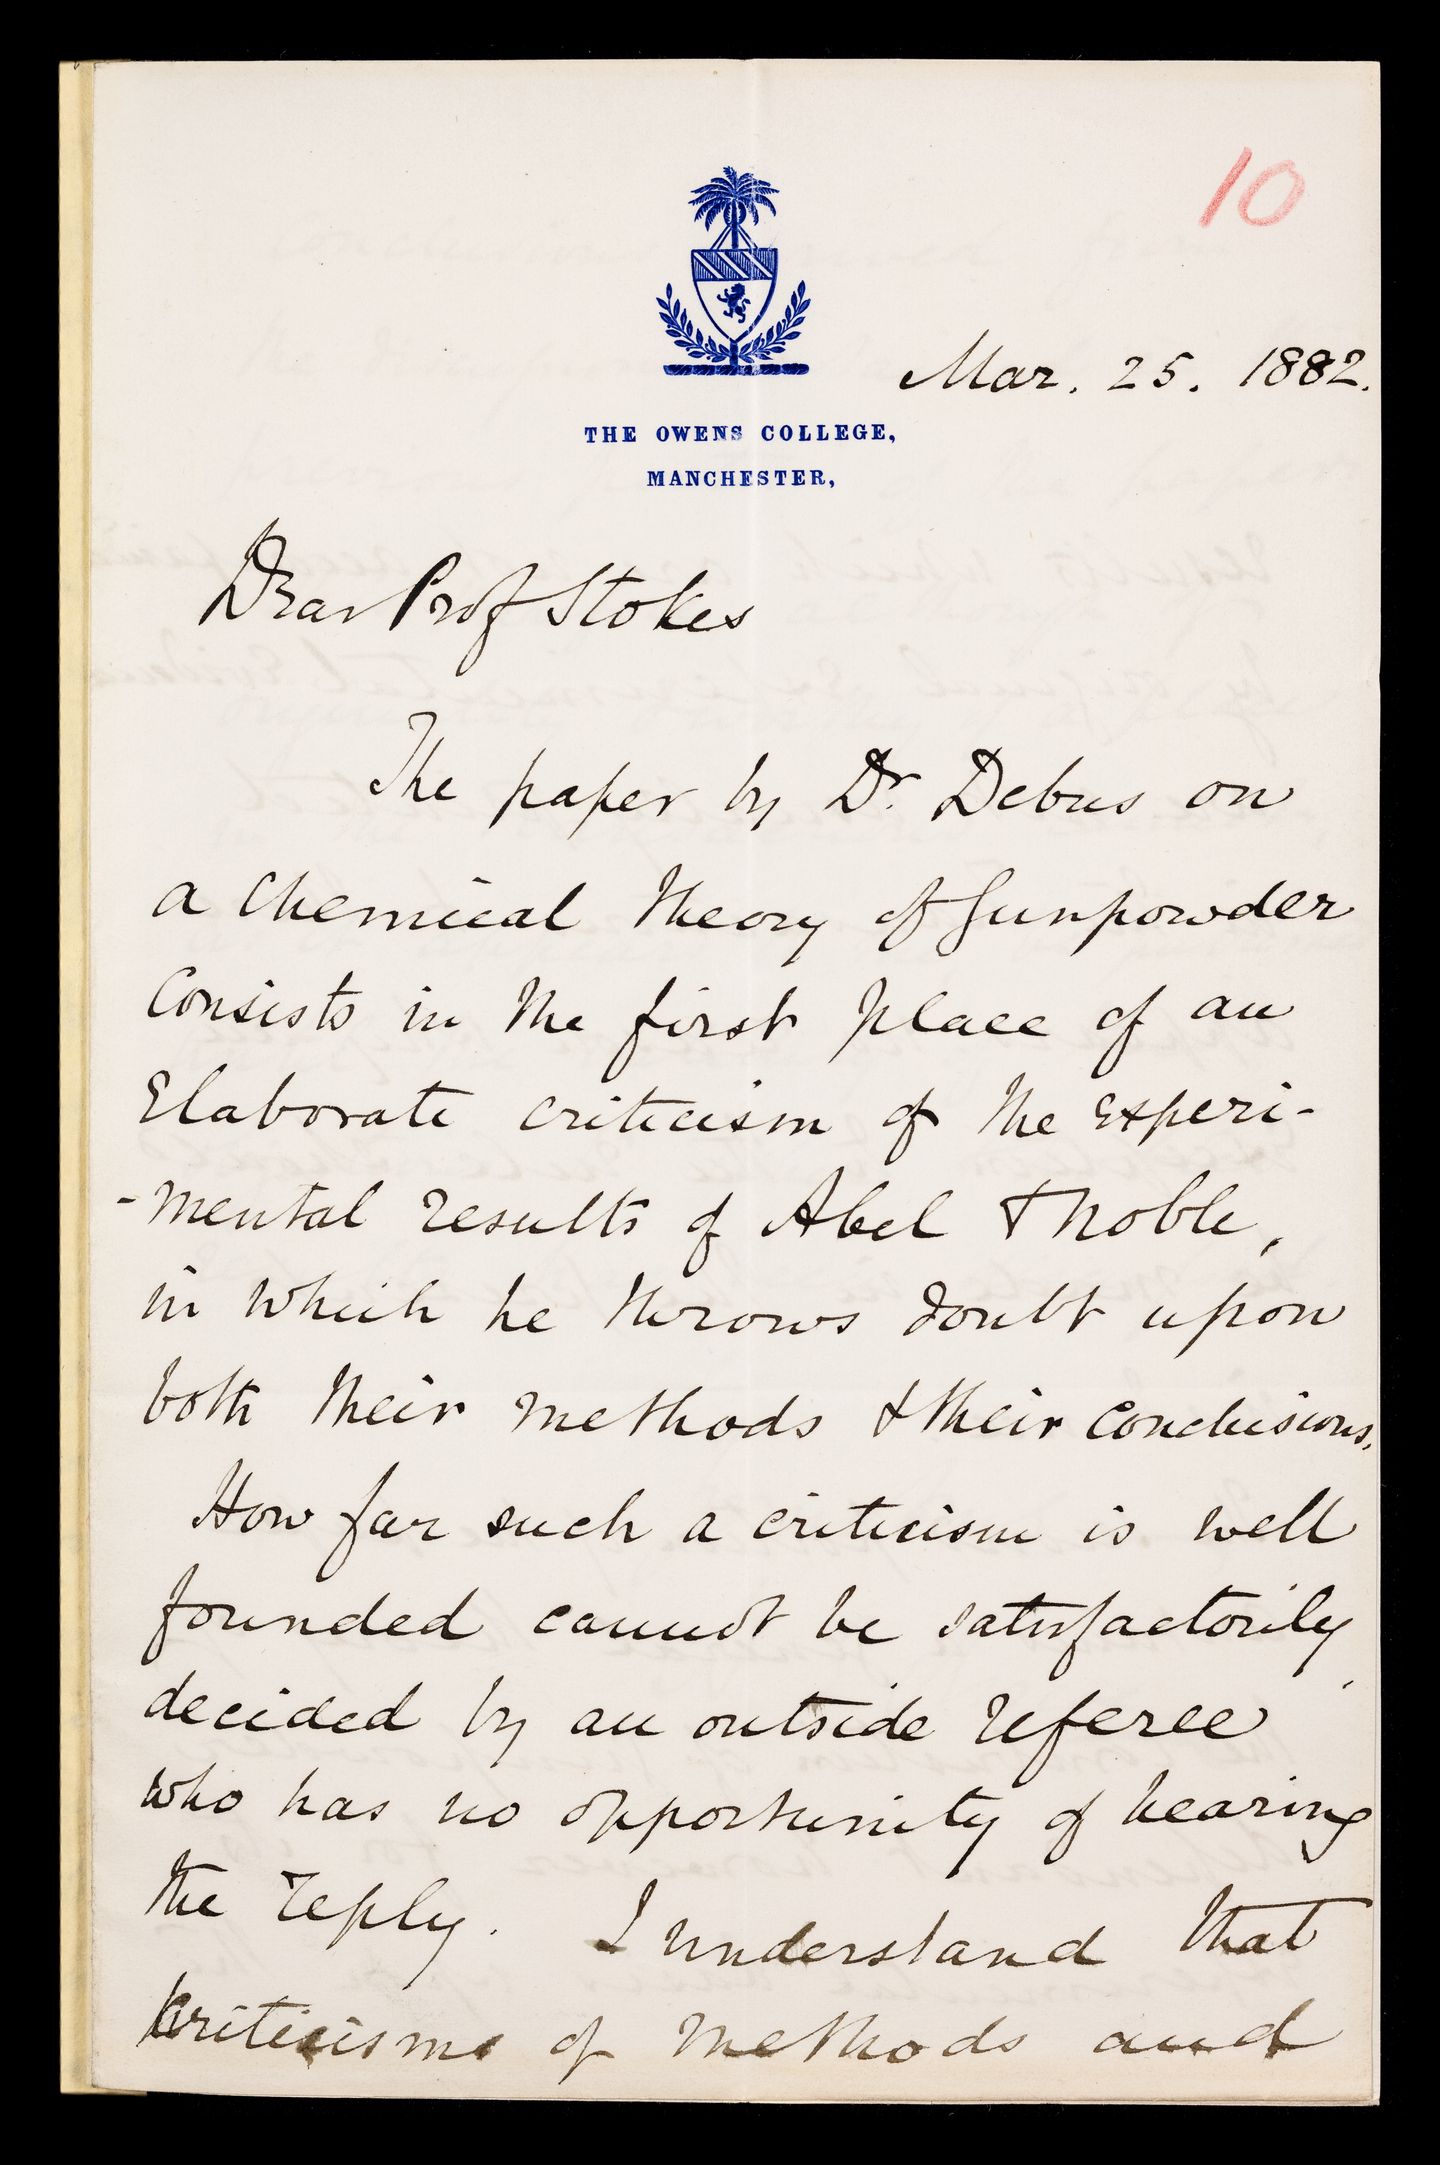 10
Mar. 25. 1882.
THE OWENS COLLEGE,
MANCHESTER,
Dear Prof Stokes
The paper by Dr. Debus on
a Chemical Theory of Gunpowder
Consists in the first place of an
Elaborate criticism of the experi-
-mental results of Abel & Noble,
in which he throws doubt upon
both their methods & their conclusions.
How far such a criticism is well
founded cannot be satisfactorily
decided by an outside referee
who has no opportunity of hearing
the reply. I understand that
Criticisms of methods and